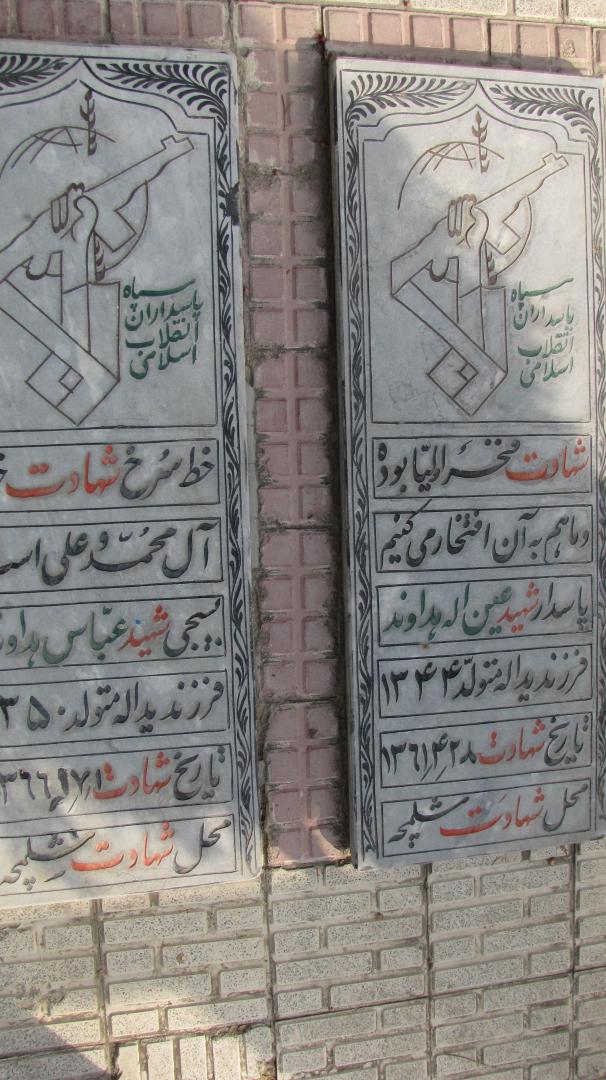 سپاه
پاسداران
انقلاب
اسلامی
شهادت مفتخر اولیا بوده
و ما هم به آن افتخار می کنیم
پاسدار شهید عین اله هداوند
فرزند یداله متولد ۱۳۴۴
تاریخ شهادت ۱۳۶۱٫۴٫۲۸
محل شهادت شلمچه
سپاه
پاسداران
انقلاب
اسلامی
خط سرخ شهادت
آل محمد و علی
بسیجی شهید عباس هداوند
فرزند یداله متولد
تاریخ شهادت
محل شهادت شلمچه